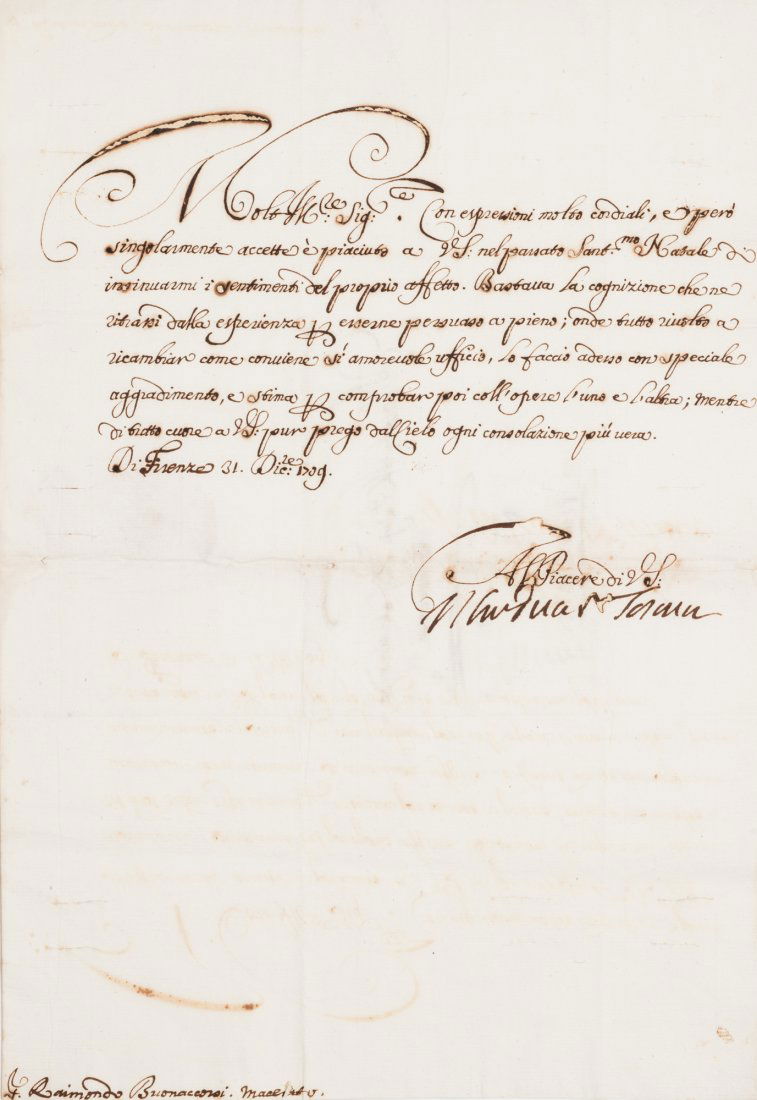 Molto Ill.re Sig.re Con espressioni molto cordiali, e però
singolarmente accette è piaciuto a VS: nel passato Sant.mo Natale di
insinuarmi i sentimenti del proprio affetto. Bastava la cognizione che ne
ritrassi dalla esperienza p esserne persuaso a pieno; onde tutto rivolto a
ricambiar come conviene sí amorevole ufficio, lo faccio adesso con speciale
aggradimento, e stima p comprobar poi coll'opere l'uno e l'altra; mentre
di tutto cuore a VS: pur prego dal Cielo ogni consolazione più vera.
Di Firenze 31. Dic.re 1709.
Al Piacere di VS:
Raimondo Buonaccorsi. Macerato.